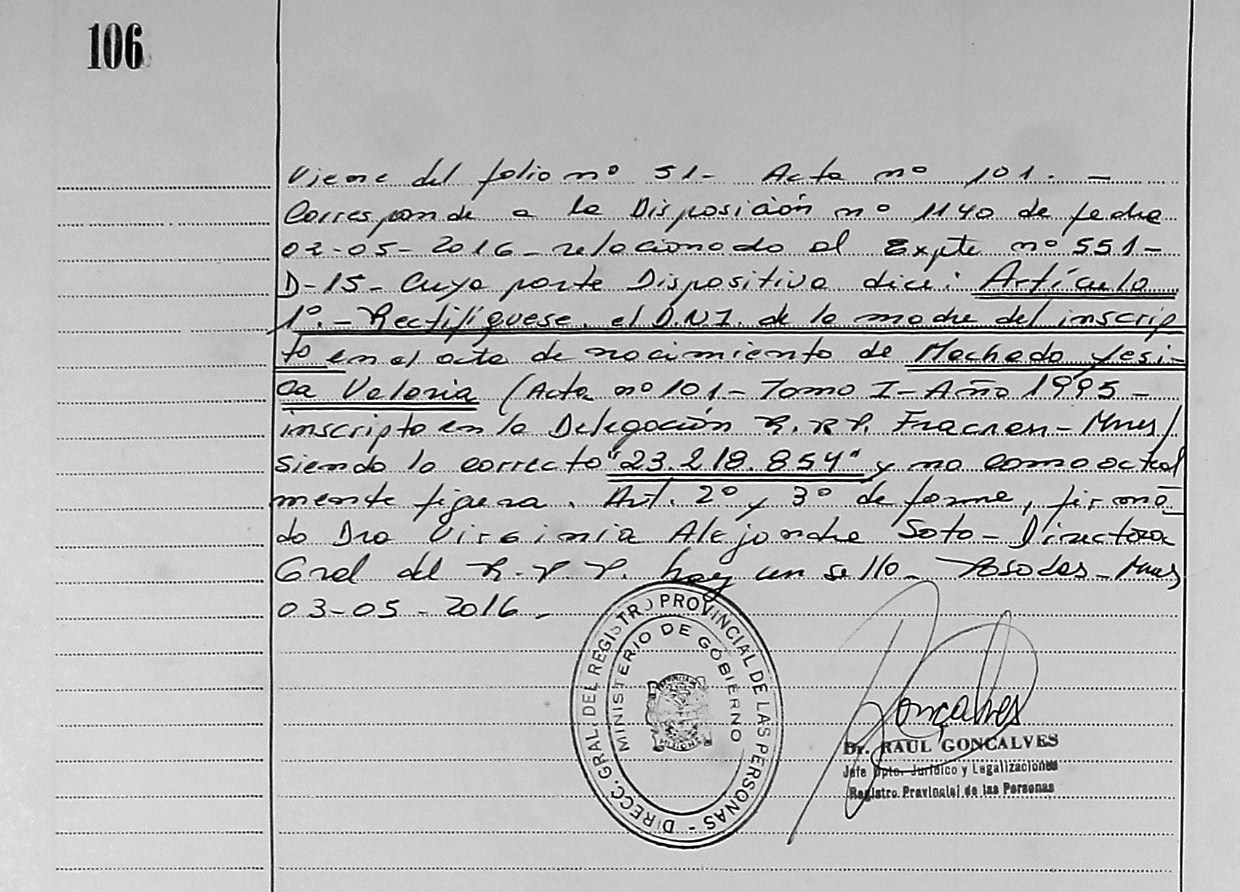 106
Viene del folio nº 51- Acta nº 101. -
Corresponde a la Disposición nº 1140 de fecha
02-05-2016 - relacionado al Expte nº 551-
D-15- Cuya parte Dispositiva dice: Artículo
1º.- Rectifíquese el D.N.I. de la madre del inscrip
to en el acta de nacimiento de Machado Yesi-
ca Valeria (Acta nº 101 - Tomo I - Año 1995 -
inscripto en la Delegación R.P.P. Fracran - Mnes)
siendo lo correcto "23.218.854" y no como actual
mente figura. Art. 2º y 3º de forma, firma
do Dra Virginia Alejandra Soto - Directora
Gral del R.P.P. hay un sello - Posadas - Mnes
03-05-2016.
DIRECC. GRAL. DEL REGISTRO PROVINCIAL DE LAS PERSONAS -
MINISTERIO DE GOBIERNO
Gonçalves
Dr. RAUL GONÇALVES
Jefe Dpto. Jurídico y Legalizaciones
Registro Provincial de las Personas